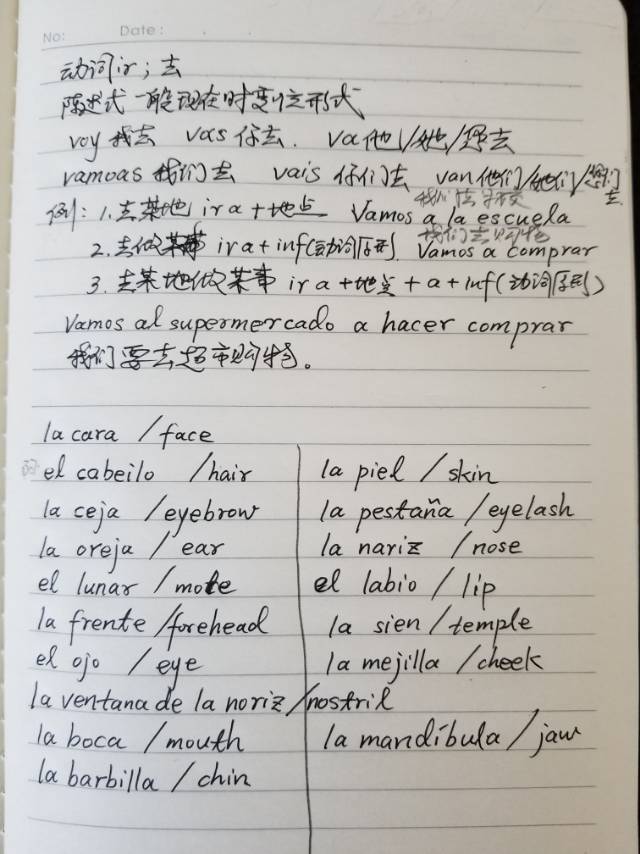 No:    Date:
动词ir；去
陈述式一般现在时变位形式
voy 我去 vas 你去. va他/她/您去
vamoas 我们去 vais 你们去 van他们/她们/您们去
我们去学校
例：1.去某地 ir a+地点 Vamos a la escuela
我们去购物
2.去做某事 ir a + inf(动词原形). Vamos a comprar
3.去某地做某事 ir a+地点+a+inf(动词原形)
Vamos al supermercado a hacer comprar
我们要去超市购物。
la cara /face
el cabeilo /hair la piel / skin
la ceja /eyebrow la pestaña /eyelash
la oreja / ear la nariz /nose
el lunar /mole el labio / lip
la frente /forehead la sien / temple
el ojo / eye la mejilla /cheek
la ventana de la noriz /nostril
la boca /mouth la mandíbula / jaw
la barbilla / chin